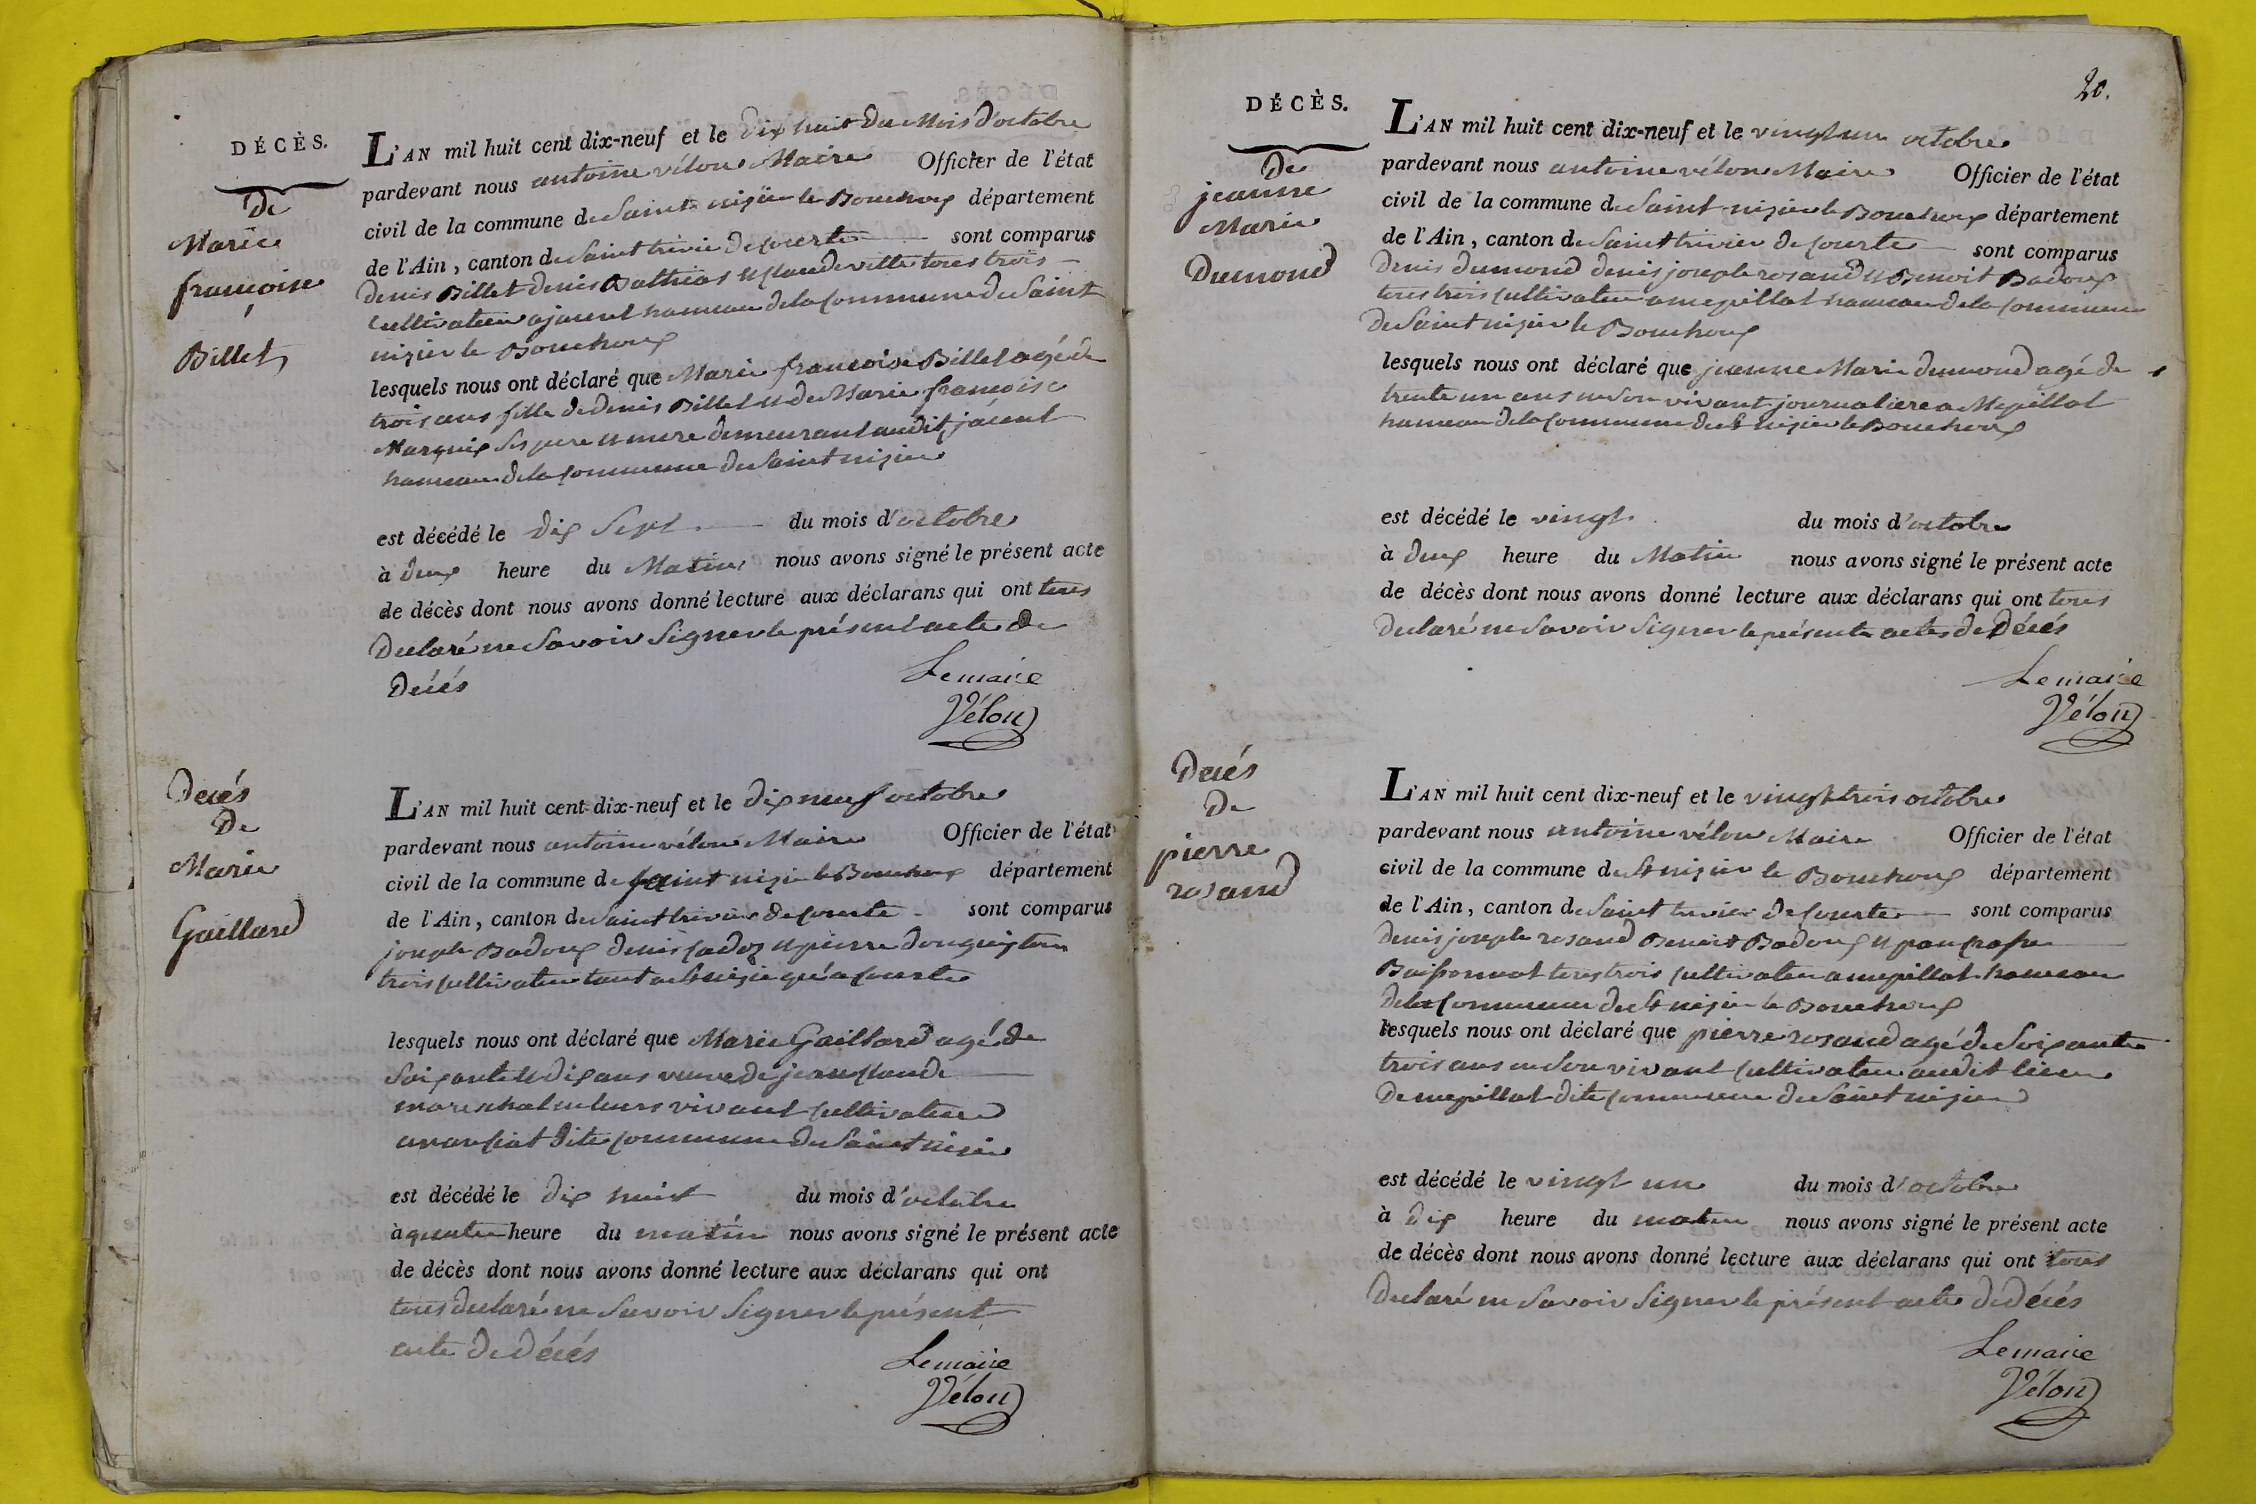 DÉCÈS.
De
Marie
françoise
Billet
L'AN mil huit cent dix-neuf et le dix huit du Mois d'octobre
pardevant nous antoine vélon Maire Officier de l'état
civil de la commune de Saint nizier le Bouchoux département
de l'Ain, canton de Saint trivier de Courte sont comparus
denis Billet denis Mathias et Claude ville tous trois
Cultivateur a jacent hameau de la Commune de Saint
nizier le Bouchoux
lesquels nous ont déclaré que Marie françoise Billet agé de
trois ans fille de denis Billet et de Marie françoise
Marquis ses pere et mere demeurant audit jacent
hameau de la Commune de Saint nizier
est décédé le dix Sept du mois d'octobre
à deux heure du Matin nous avons signé le présent acte
de décès dont nous avons donné lecture aux déclarans qui ont tous
Declaré ne Savoir Signer le présent acte de
Décés
Lemaire
Vélon
Decés
De
Marie
Gaillard
L'AN mil huit cent dix-neuf et le dix neuf octobre
pardevant nous antoine vélon Maire Officier de l'état
civil de la commune de Saint nizier le Bouchoux département
de l'Ain, canton de Saint trivier de Courte sont comparus
joseph Badoux denis Cadoz et pierre tous
trois Cultivateur tant a St nizier qu'a Courte
lesquels nous ont déclaré que Marie Gaillard agé de
Soixante et dix ans veuve de jean Claude
mareschal en leurs vivant Cultivateur
a dite Commune de Saint nizier
est décédé le dix huit du mois d'octobre
à quatre heure du matin nous avons signé le présent acte
de décès dont nous avons donné lecture aux déclarans qui ont
tous declaré ne Savoir Signer le présent
acte de décés
Lemaire
Vélon
20.
DÉCÈS.
De
jeanne
Marie
Dumond
L'AN mil huit cent dix-neuf et le vingt un octobre
pardevant nous antoine vélon Maire Officier de l'état
civil de la commune de Saint nizier le Bouchoux département
de l'Ain, canton de Saint trivier de Courte sont comparus
Denis dumond denis joseph rosand et Benoit Badoux
tous trois Cultivateur a mepillat hameau de la Commune
de Saint nizier le Bouchoux
lesquels nous ont déclaré que jeanne Marie dumond agé de
trente un ans en Son vivant journaliere a Mepillat
hameau de la Commune de St nizier le Bouchoux
est décédé le vingt du mois d'octobre
à deux heure du Matin nous avons signé le présent acte
de décès dont nous avons donné lecture aux déclarans qui ont tous
declaré ne Savoir Signer le présente acte de Décés
Lemaire
Vélon
Decés
De
pierre
rosand
L'AN mil huit cent dix-neuf et le vingt trois octobre
pardevant nous antoine vélon Maire Officier de l'état
civil de la commune de St nizier le Bouchoux département
de l'Ain, canton de Saint trivier de Courte sont comparus
Denis joseph rosand Benoit Badoux et
tous trois Cultivateur a mepillat hameau
de la Commune de St nizier le Bouchoux
lesquels nous ont déclaré que pierre rosand agé de Soixante
trois ans en Son vivant Cultivateur audit lieu
De mepillat dite Commune de Saint nizier
est décédé le vingt un du mois d'octobre
à dix heure du matin nous avons signé le présent acte
de décès dont nous avons donné lecture aux déclarans qui ont tous
Declaré ne Savoir Signer le présent acte de décés
Lemaire
Vélon